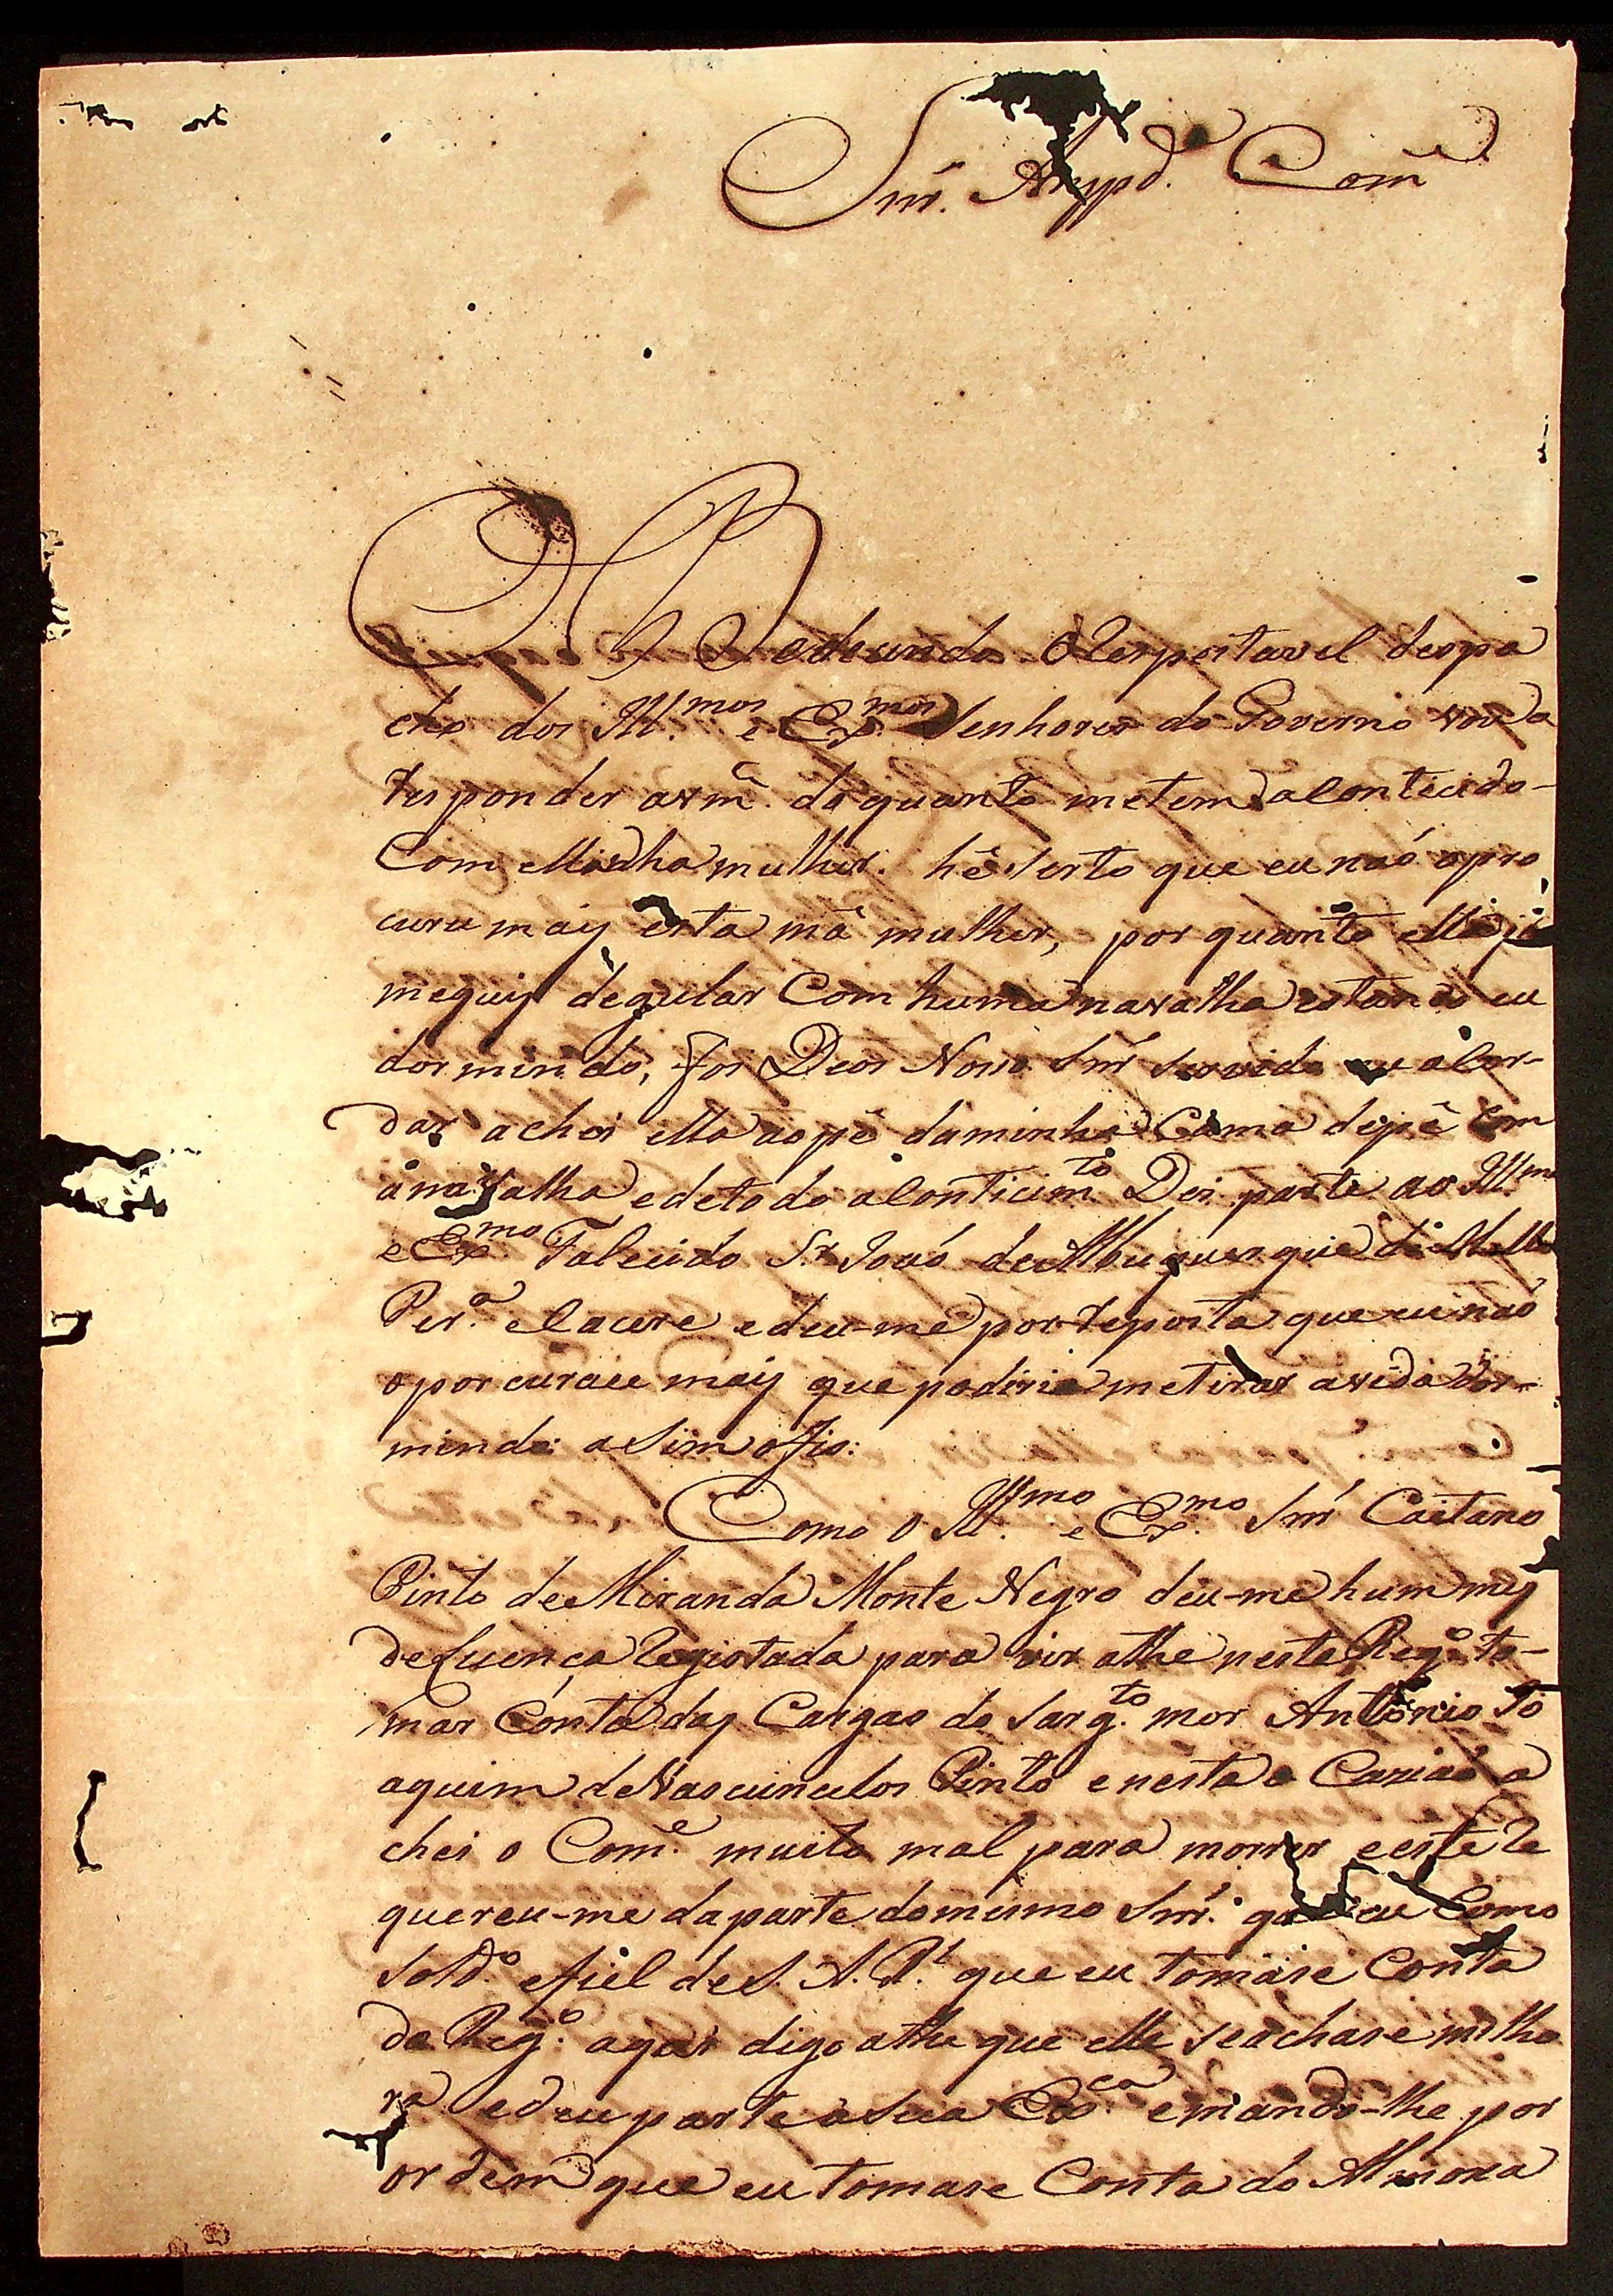 Snr. Anspd.ª Com.e
Obedecendo O Respeitavel despa
cho dos Ill.mos e Ex.mos Senhores do Governo vou a
responder avm.ce do quanto metem acontecido
Com Minha mulher. hé Serto que eu naó apro
curu mais esta má mulher, por quanto ella já
mequis degular Com huma navalha estando eu
dormindo, foi Deos Noso Snr Servido eu acor-
dar achei ella aopé daminha Cama depé Com
ánavalha edetodo acontecim.to Dei parte ao Ill.mo
e Ex.mo Falecido S.r Joaó deAlbuquerque de Mello
Per.ª eCacere edeu-me por reposta que eu naó
aporcurace mais que poderia metirar avida dor-
mindo: aSim ofis:
Como o Ill.mo e Ex.mo Snr Caetano
Pinto deMiranda Monte Negro deu-me hum mes
deLicença Registada para vir athe neste Reg.o to-
mar Conta das Cargas do Sarg.to mor António Jo
aquim deVasconcelos Pinto enesta o Caziaó a
chei o Com.e muito mal para morrer eeste Re
quereu-me daparte domesmo Snr. Como
Sold.o efiel deS. A. R.l que eu tomáse Conta
do Reg.o agoi digo athe que elle seachase milho
ra edeu parte aSua Ex.ca emandó-lhe por
ordem que eu tomase Conta do Almoxa